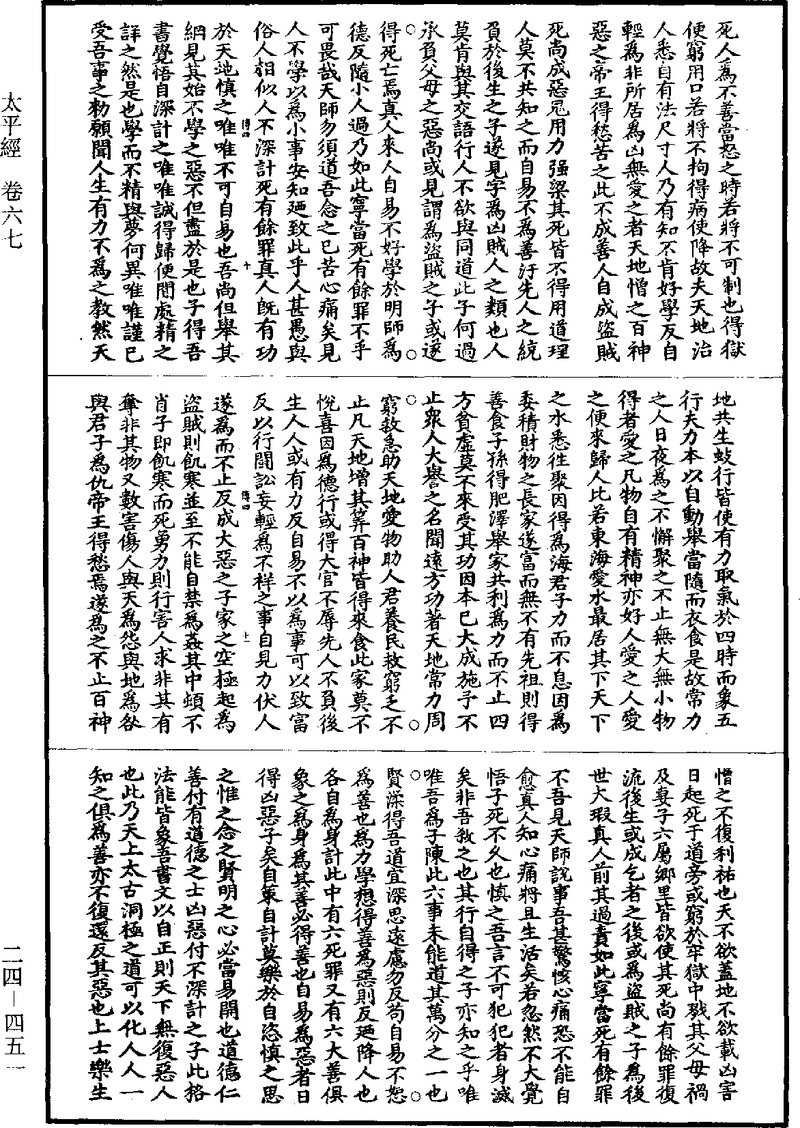 太平經　卷六七
二四－四五一
死人為不善當怒之時若將不可制也得獄
便窮用口若將不拘得病使降故夫天地治
人悉自有法尺寸人乃有知不肯好學反自
輕為非所居為凶無愛之者天地憎之百神
惡之帝王得愁苦之此不成善人自成盜賊
死尚成惡鬼用力强梁其死皆不得用道理
人莫不共知之而自易不為善汙先人之統
負於後生之子遂見字為凶賊人之類也人
莫肯與其交語行人不欲與同道此子何過
承負父母之惡尚或見謂為盜賊之子或遂
得死亡焉真人來人自易不好學於明師為
德反隨小人過乃如此寧當死有餘罪不乎
可畏哉天師勿須道吾念之已苦心痛矣見
人不學以為小事安知廼致此乎人甚愚與
俗人相似人不深計死有餘罪真人既有功
於天地慎之唯唯不可自易也吾尚但舉其
綱見其始不學之惡不但盡於是也子得吾
書覺悟自深計之唯唯誠得歸便閒處精之
詳之然是也學而不精與夢何異唯唯謹已
受吾事之勑願聞人生有力不為之教然天
地共生蚑行皆使有力取氣於四時而象五
行夫力本以自動舉當隨而衣食是故常力
之人日夜為之不懈聚之不止無大無小物
得者愛之凡物自有精神亦好人愛之人愛
之便來歸人比若東海愛水最居其下天下
之水悉往聚因得為海君子力而不息因為
委積財物之長家遂富而無不有先祖則得
善食子孫得肥澤舉家共利為力而不止四
方貧虛莫不來受其功因本已大成施予不
止衆人大譽之名聞遠方功著天地常力周
窮救急助天地愛物助人君養民救窮乏不
止凡天地增其算百神皆得來食此家莫不
悅喜因為德行或得大官不辱先人不負後
生人人或有力反自易不以為事可以致富
反以行鬪訟妄輕為不祥之事自見力伏人
遂為而不止反成大惡之子家之空極起為
盜賊則飢寒並至不能自禁為姦其中頓不
肖子即飢寒而死勇力則行害人求非其有
奪非其物又數害傷人與天為怨與地為咎
與君子為仇帝王得愁焉遂為之不止百神
憎之不復利祐也天不欲蓋地不欲載凶害
日起死于道旁或窮於牢獄中戮其父母禍
及妻子六屬鄉里皆欲使其死尚有餘罪復
流後生或成乞者之後或為盜賊之子為後
世大瑕真人前其過責如此寧當死有餘罪
不吾見天師說事吾甚驚怪心痛恐不能自
愈真人知心痛將且生活矣若忽然不大覺
悟子死不久也慎之吾言不可犯犯者身滅
矣非吾殺之也其行自得之子亦知之乎唯
唯吾為子陳此六事未能道其萬分之一也
賢深得吾道宜深思遠慮勿反苟自易不恕
為善也為力學想得善為惡則反廼降人也
各自為身計此中有六死罪又有六大善俱
象之為身為其善必得善也自易為惡者日
得凶惡子矣自策自計莫樂於自恣慎之思
之惟之念之賢明之心必當易開也道德仁
善付有道德之士凶惡付不深計之子此格
法能皆象吾書文以自正則天下無復惡人
也此乃天上太古洞極之道可以化人人一
知之俱為善亦不復還反其惡也上士樂生